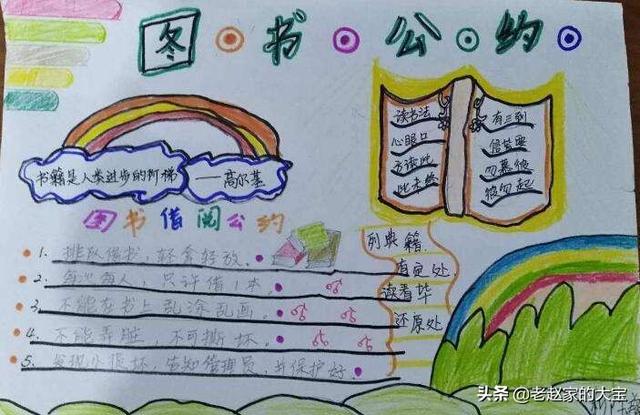 图书公约
书籍是人类进步的阶梯
——高尔基
读书法
心眼口
方读此
此未终
有三到
信皆要
勿慕彼
彼勿起
图书借阅公约
1. 排队借书，轻拿轻放。
2. 每次每人，只许借1本。
3. 不能在书上乱涂乱画。
4. 不能弄脏，不可撕坏。
5. 发现小损坏，告知管理员，并保护好。
列典籍
有定处
读看毕
还原处
头条 @老赵家的大宝